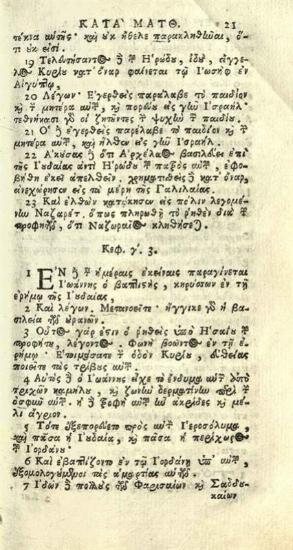 ΚΑΤΑ ΜΑΤΘ. 21
τέκνα αὑτῆς· καὶ οὐκ ἤθελε παρακληθῆναι, ὅ-
τι οὐκ εἰσί.
19 Τελευτήσαντος δὲ τοῦ Ἡρώδου, ἰδοὺ, ἄγγελος
Κυρίου κατ᾽ ὄναρ φαίνεται τῷ Ἰωσὴφ ἐν
Αἰγύπτῳ,
20 Λέγων· Ἐγερθεὶς παράλαβε τὸ παιδίον
καὶ τὴν μητέρα αὐτοῦ, καὶ πορεύου εἰς γῆν Ἰσραήλ·
τεθνήκασι γὰρ οἱ ζητοῦντες τὴν ψυχὴν τοῦ παιδίου.
21 Ὁ δὲ ἐγερθεὶς παρέλαβε τὸ παιδίον καὶ τὴν
μητέρα αὐτοῦ, καὶ ἦλθεν εἰς γῆν Ἰσραήλ.
22 Ἀκούσας δὲ ὅτι Ἀρχέλαος βασιλεύει ἐπὶ
τῆς Ἰουδαίας ἀντὶ Ἡρώδου τοῦ πατρὸς αὐτοῦ, ἐφο-
βήθη ἐκεῖ ἀπελθεῖν· χρηματισθεὶς δὲ κατ᾽ ὄναρ,
ἀνεχώρησεν εἰς τὰ μέρη τῆς Γαλιλαίας.
23 Καὶ ἐλθὼν κατῴκησεν εἰς πόλιν λεγομέ-
νην Ναζαρέτ· ὅπως πληρωθῇ τὸ ῥηθὲν διὰ τῶν
προφητῶν, ὅτι Ναζωραῖος κληθήσεται.
Κεφ. γ΄. 3.
1 ΕΝ δὲ ταῖς ἡμέραις ἐκείναις παραγίνεται
Ἰωάννης ὁ βαπτιστὴς, κηρύσσων ἐν τῇ
ἐρήμῳ τῆς Ἰουδαίας,
2 Καὶ λέγων· Μετανοεῖτε· ἤγγικε γὰρ ἡ βα-
σιλεία τῶν οὐρανῶν.
3 Οὗτος γάρ ἐστιν ὁ ῥηθεὶς ὑπὸ Ἡσαΐου τοῦ
προφήτου, λέγοντος· Φωνὴ βοῶντος ἐν τῇ ἐ-
ρήμῳ· Ἑτοιμάσατε τὴν ὁδὸν Κυρίου, εὐθείας
ποιεῖτε τὰς τρίβους αὐτοῦ.
4 Αὐτὸς δὲ ὁ Ἰωάννης εἶχε τὸ ἔνδυμα αὑτοῦ ἀπὸ
τριχῶν καμήλου, καὶ ζώνην δερματίνην περὶ τὴν
ὀσφὺν αὑτοῦ· ἡ δὲ τροφὴ αὐτοῦ ἦν ἀκρίδες καὶ μέ-
λι ἄγριον.
5 Τότε ἐξεπορεύετο πρὸς αὐτὸν Ἱεροσόλυμα,
καὶ πᾶσα ἡ Ἰουδαία, καὶ πᾶσα ἡ περίχωρος τοῦ
Ἰορδάνου·
6 Καὶ ἐβαπτίζοντο ἐν τῷ Ἰορδάνῃ ὑπ᾽ αὐτοῦ,
ἐξομολογούμενοι τὰς ἁμαρτίας αὑτῶν.
7 Ἰδὼν δὲ πολλοὺς τῶν Φαρισαίων καὶ Σαδδου-
καίων